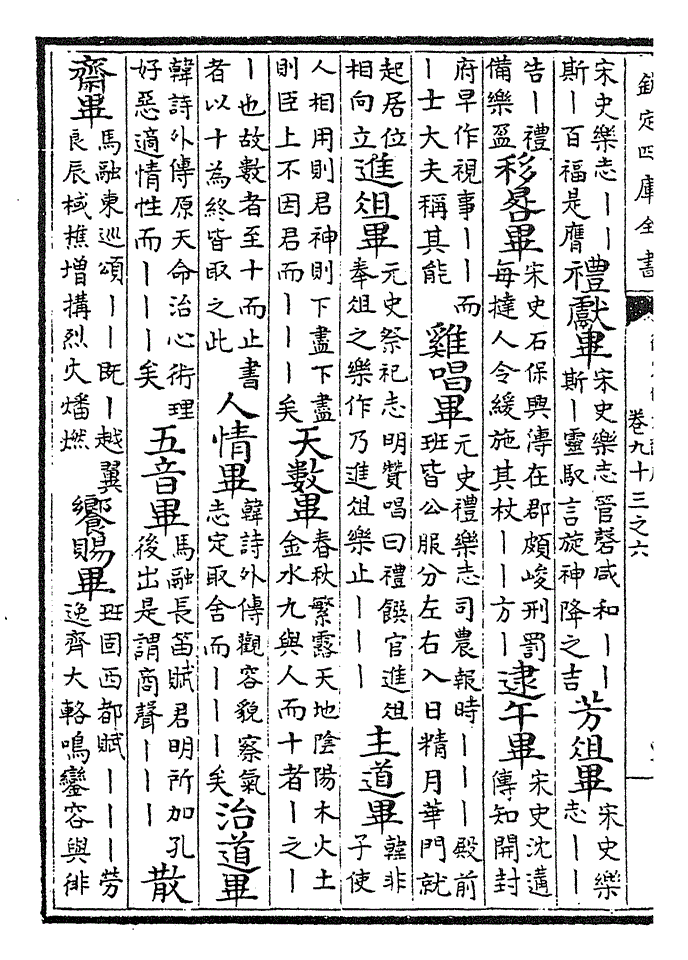 欽定四庫全書 卷九十三之六
宋史樂志丨丨斯丨百福是膺禮獻畢宋史樂志管磬咸和丨丨斯丨靈馭言旋神降之吉芳俎畢宋史樂志丨丨
告丨禮備樂盈移晷畢宋史石保興傳在郡頗峻刑罰每撻人令緩施其杖丨丨方丨逮午畢宋史沈遘傳知開封
府早作視事丨丨而丨士大夫稱其能雞唱畢元史禮樂志司農報時丨丨丨殿前班皆公服分左右入日精月華門就
起居位相向立進俎畢元史祭祀志明贊唱曰禮饌官進俎奉俎之樂作乃進俎樂止丨丨丨主道畢韓非子使
人相用則君神則下盡下盡則臣上不因君而丨丨丨矣天數畢春秋繁露天地陰陽木火土金水九與人而十者丨之丨
丨也故數者至十而止書者以十為終皆取之此人情畢韓詩外傳觀容貌察氣志定取舍而丨丨丨矣治道畢
韓詩外傳原天命治心術理好惡適情性而丨丨丨矣五音畢馬融長笛賦君明所加孔後出是謂商聲丨丨丨散
齋畢馬融東巡頌丨丨既丨越翼良辰棫樵增搆烈火燔燃饗賜畢班固西都賦丨丨丨勞逸齊大輅鳴鑾容與徘